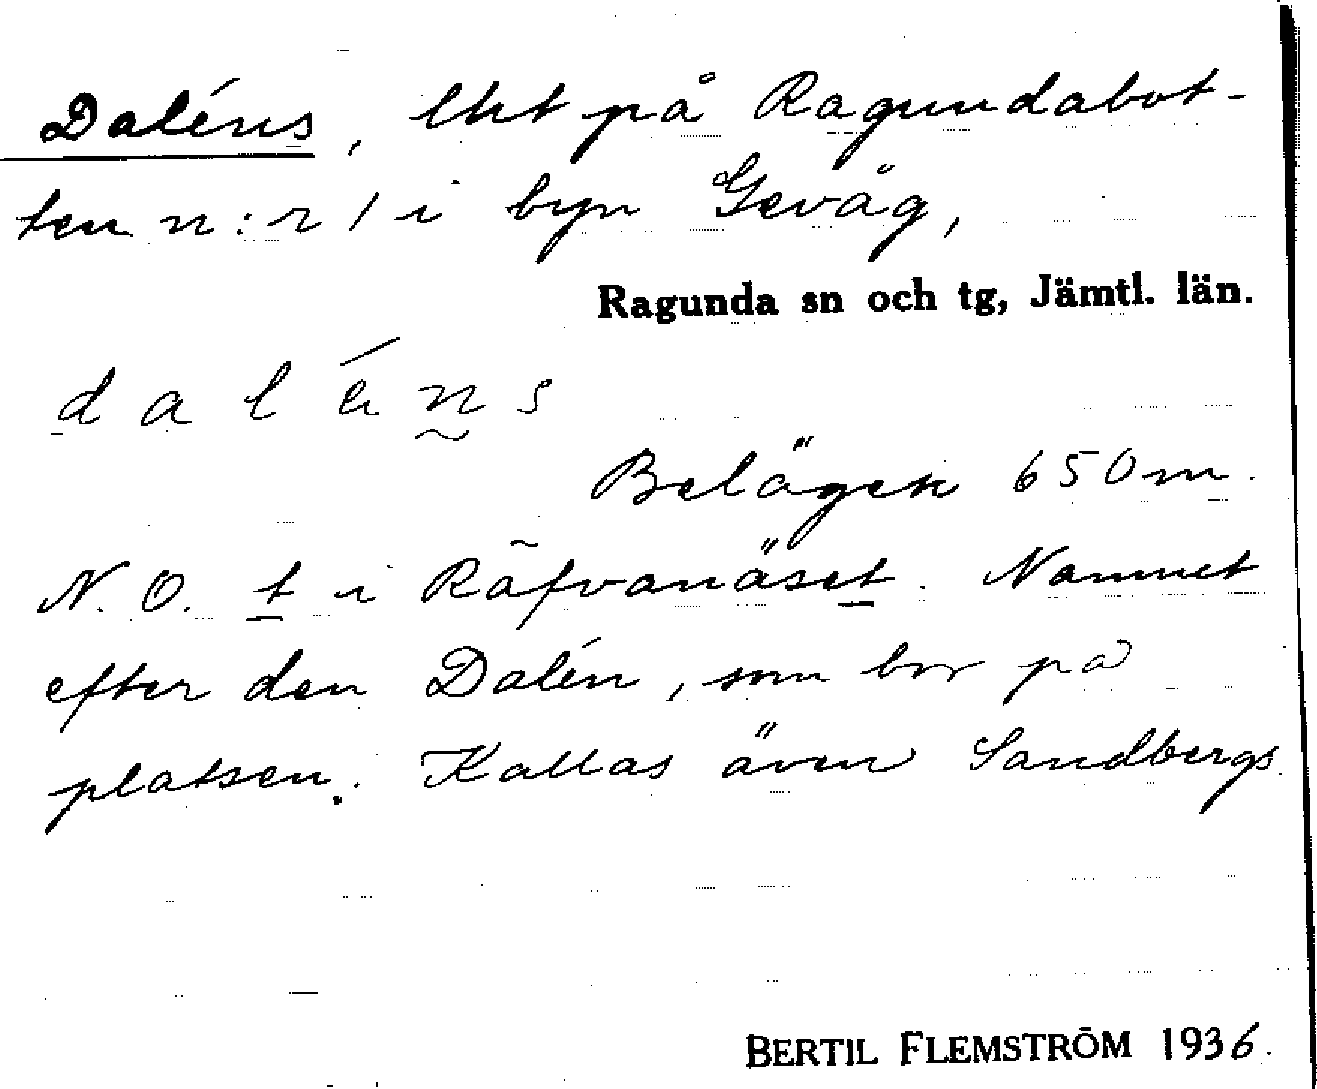 Daléns, lht på Ragundabot-
ten n:r 1 i byn Gevåg,
Ragunda sn och tg, Jämtl. län.
d a l é n s
Belägen 650 m.
N.O. t i Räfvanäset. Namnet
efter den Dalén, som bor på
platsen. Kallas även Sandbergs.
BERTIL FLEMSTRÖM 1936.